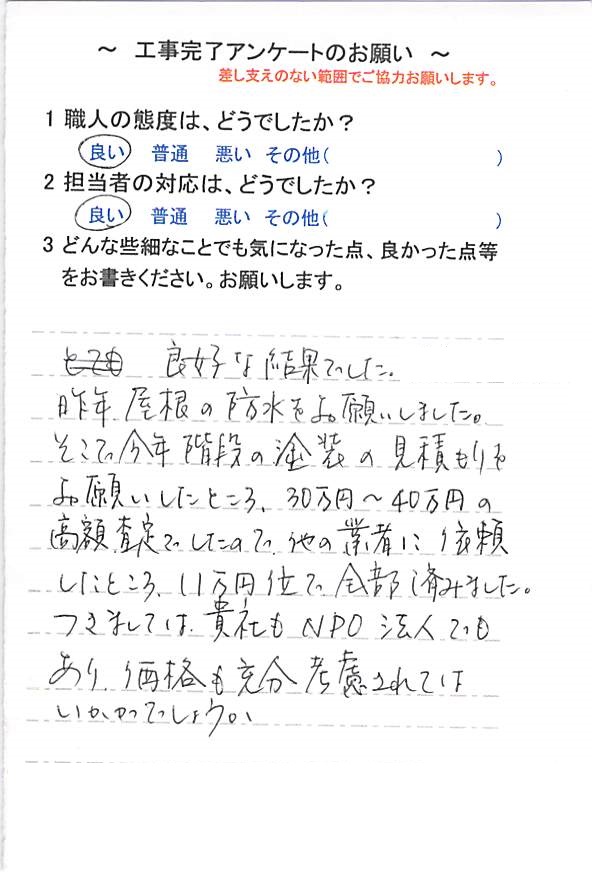 ～ 工事完了アンケートのお願い ～
差し支えのない範囲でご協力お願いします。
1 職人の態度は、どうでしたか？
良い 普通 悪い その他( )
2 担当者の対応は、どうでしたか？
良い 普通 悪い その他( )
3 どんな些細なことでも気になった点、良かった点等
をお書きください。お願いします。
とても 良好な結果でした。
昨年、屋根の防水をお願いしました。
そこで今年階段の塗装の見積もりを
お願いしたところ、30万円～40万円の
高額査定でしたので、他の業者に依頼
したところ、11万円位で全部済みました。
つきましては、貴社もNPO法人でも
あり、価格も充分考慮されては
いかがでしょうか、